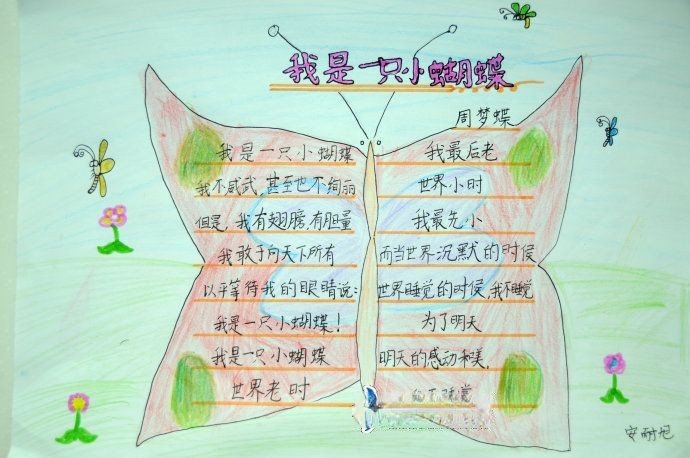 我是一只小蝴蝶
周梦蝶
我是一只小蝴蝶
我不威武,甚至也不绚丽
但是,我有翅膀,有胆量
我敢于向天下所有
以平等待我的眼睛说:
我是一只小蝴蝶!
我是一只小蝴蝶
世界老时
我最后老
世界小时
我最先小
而当世界沉默的时候
世界睡觉的时候,我不睡觉
为了明天
明天的感动和美,
我不睡觉
安耐旭